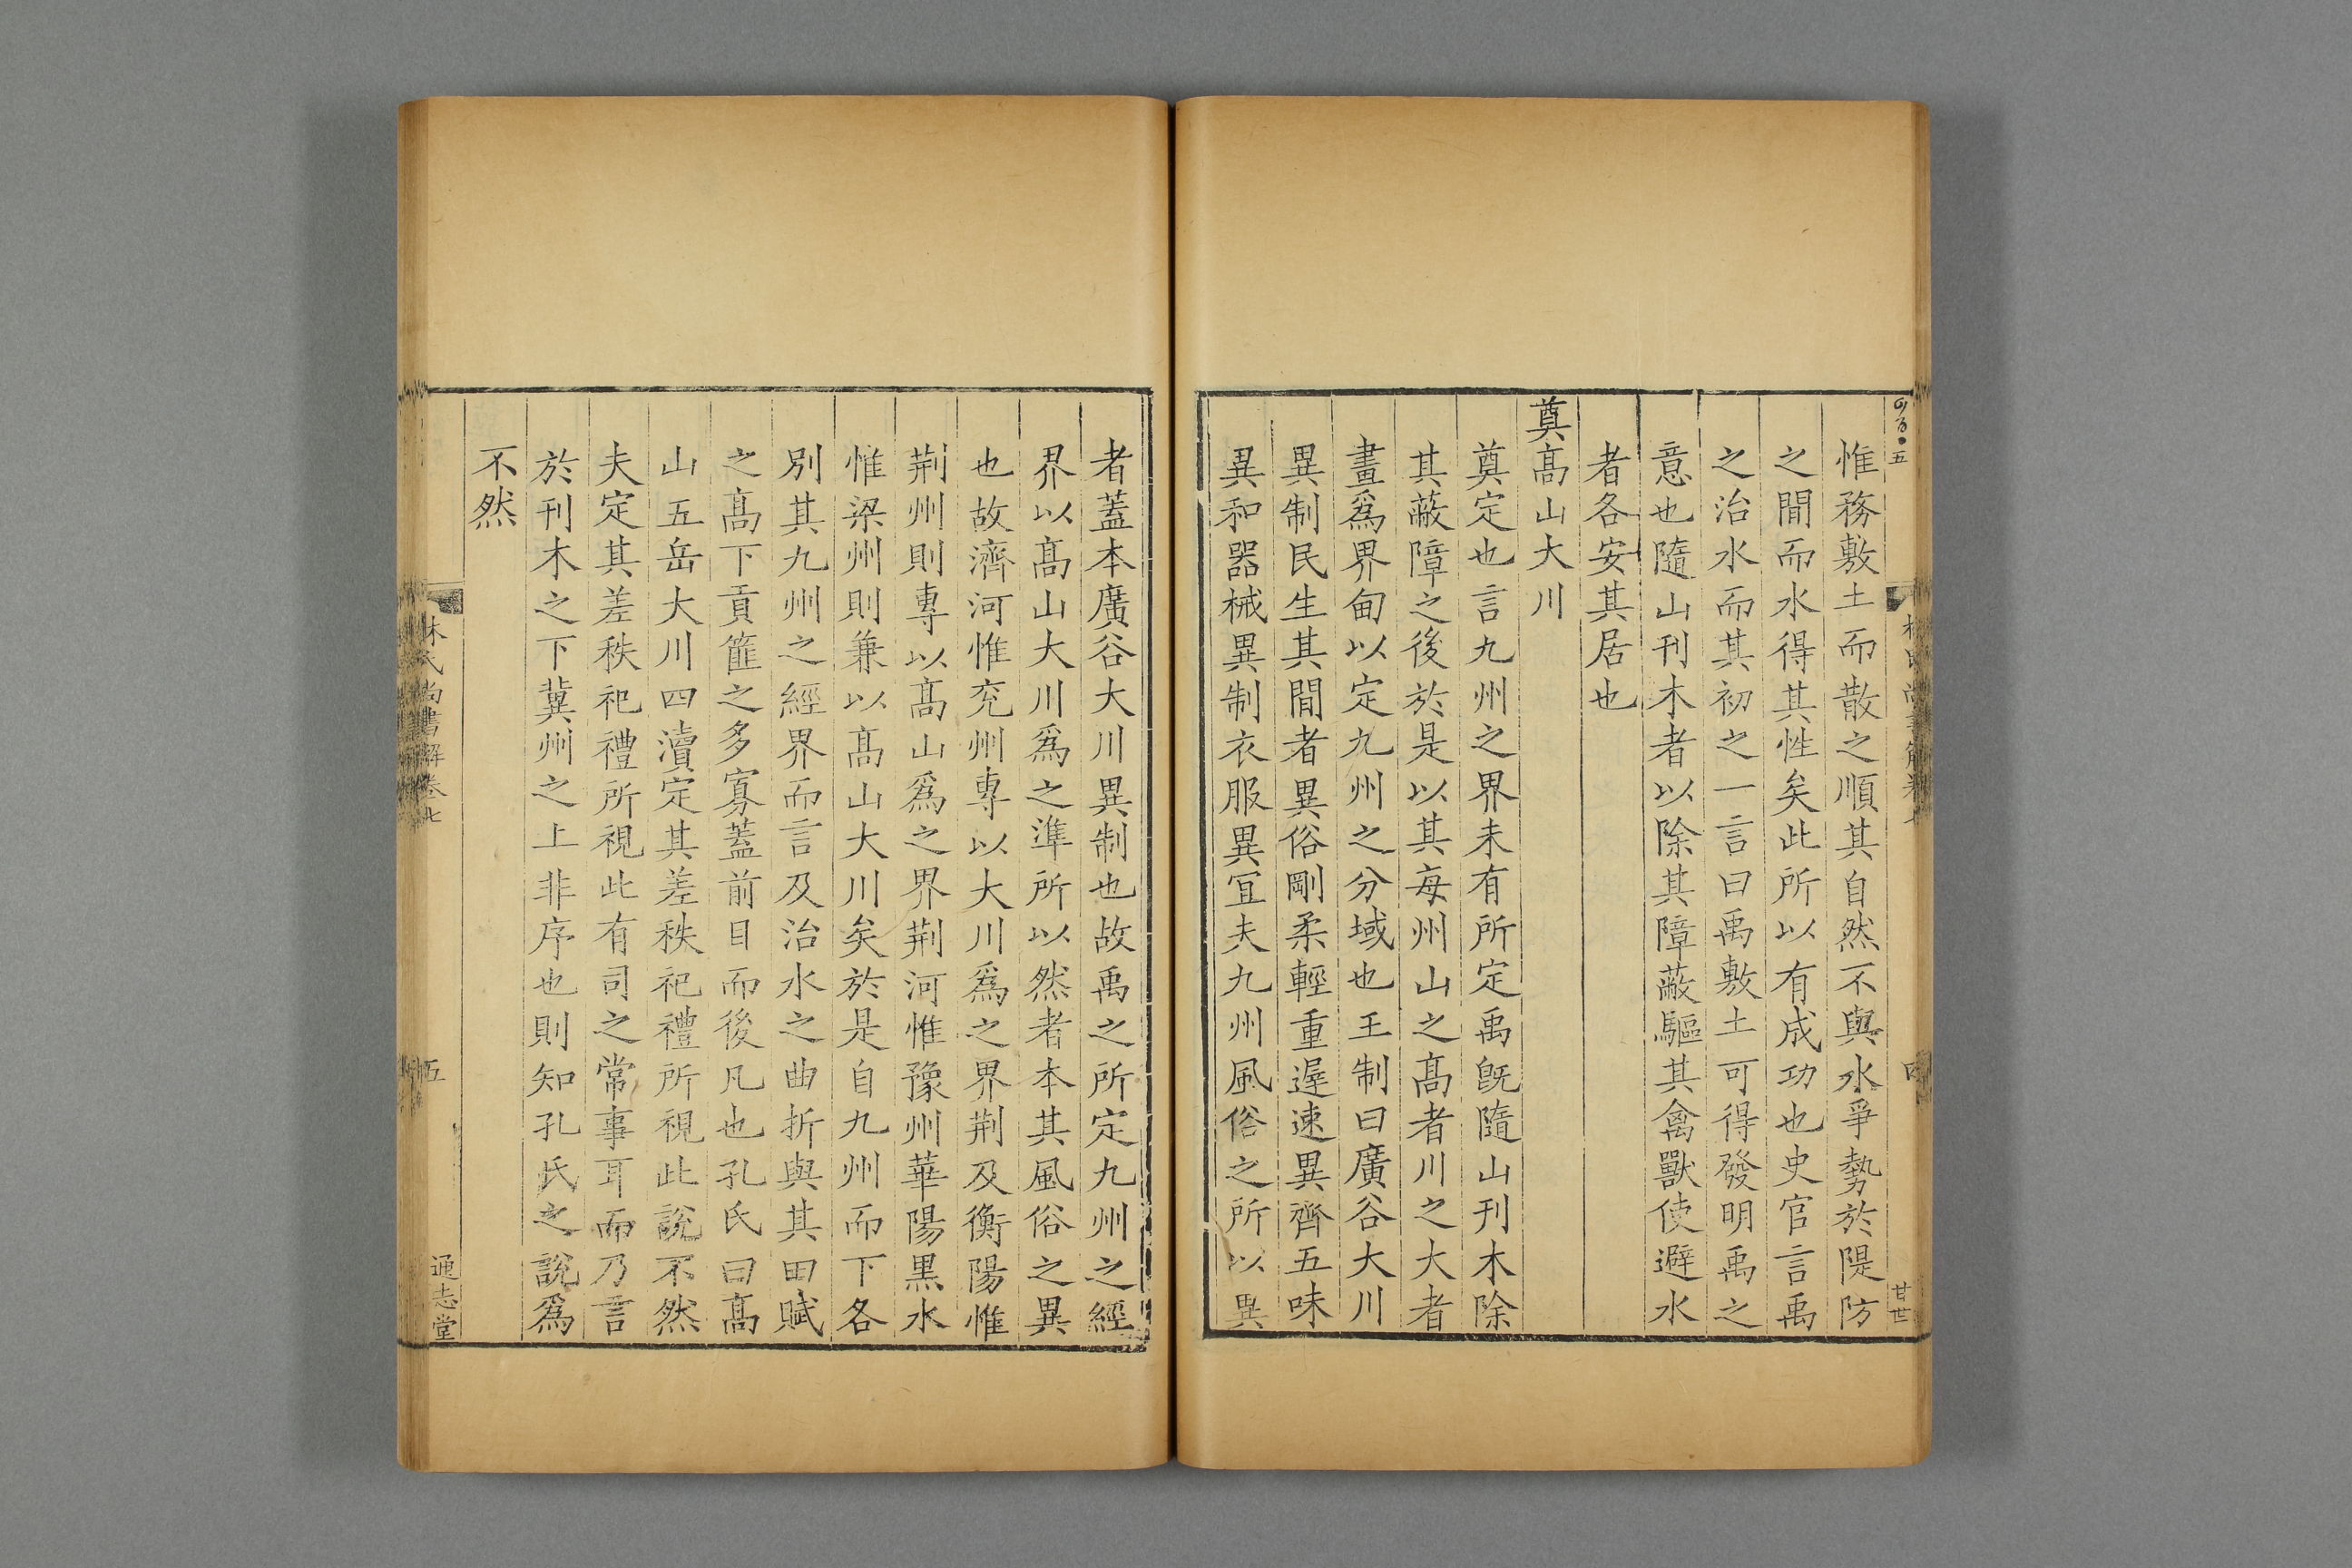 惟務敷土而散之順其自然不與水爭勢於隄防
之間而水得其性矣此所以有成功也史官言禹
之治水而其初之一言曰禹敷土可得發明禹之
意也隨山刊木者以除其障蔽驅其禽獸使避水
者各安其居也
奠高山大川
奠定也言九州之界未有所定禹旣隨山刊木除
其蔽障之後於是以其每州山之高者川之大者
畫爲界甸以定九州之分域也王制曰廣谷大川
異制民生其間者異俗剛柔輕重遲速異齊五味
異和器械異制衣服異宜夫九州風俗之所以異
者蓋本廣谷大川異制也故禹之所定九州之經
界以高山大川爲之準所以然者本其風俗之異
也故濟河惟兖州專以大川爲之界荆及衡陽惟
荆州則專以高山爲之界荆河惟豫州華陽黑水
惟梁州則兼以高山大川矣於是自九州而下各
別其九州之經界而言及治水之曲折與其田賦
之高下貢篚之多寡蓋前目而後凡也孔氏曰高
山五岳大川四瀆定其差秩祀禮所視此說不然
夫定其差秩祀禮所視此有司之常事耳而乃言
於刊木之下冀州之上非序也則知孔氏之說爲
不然
林氏尚書解卷七
五
通志堂